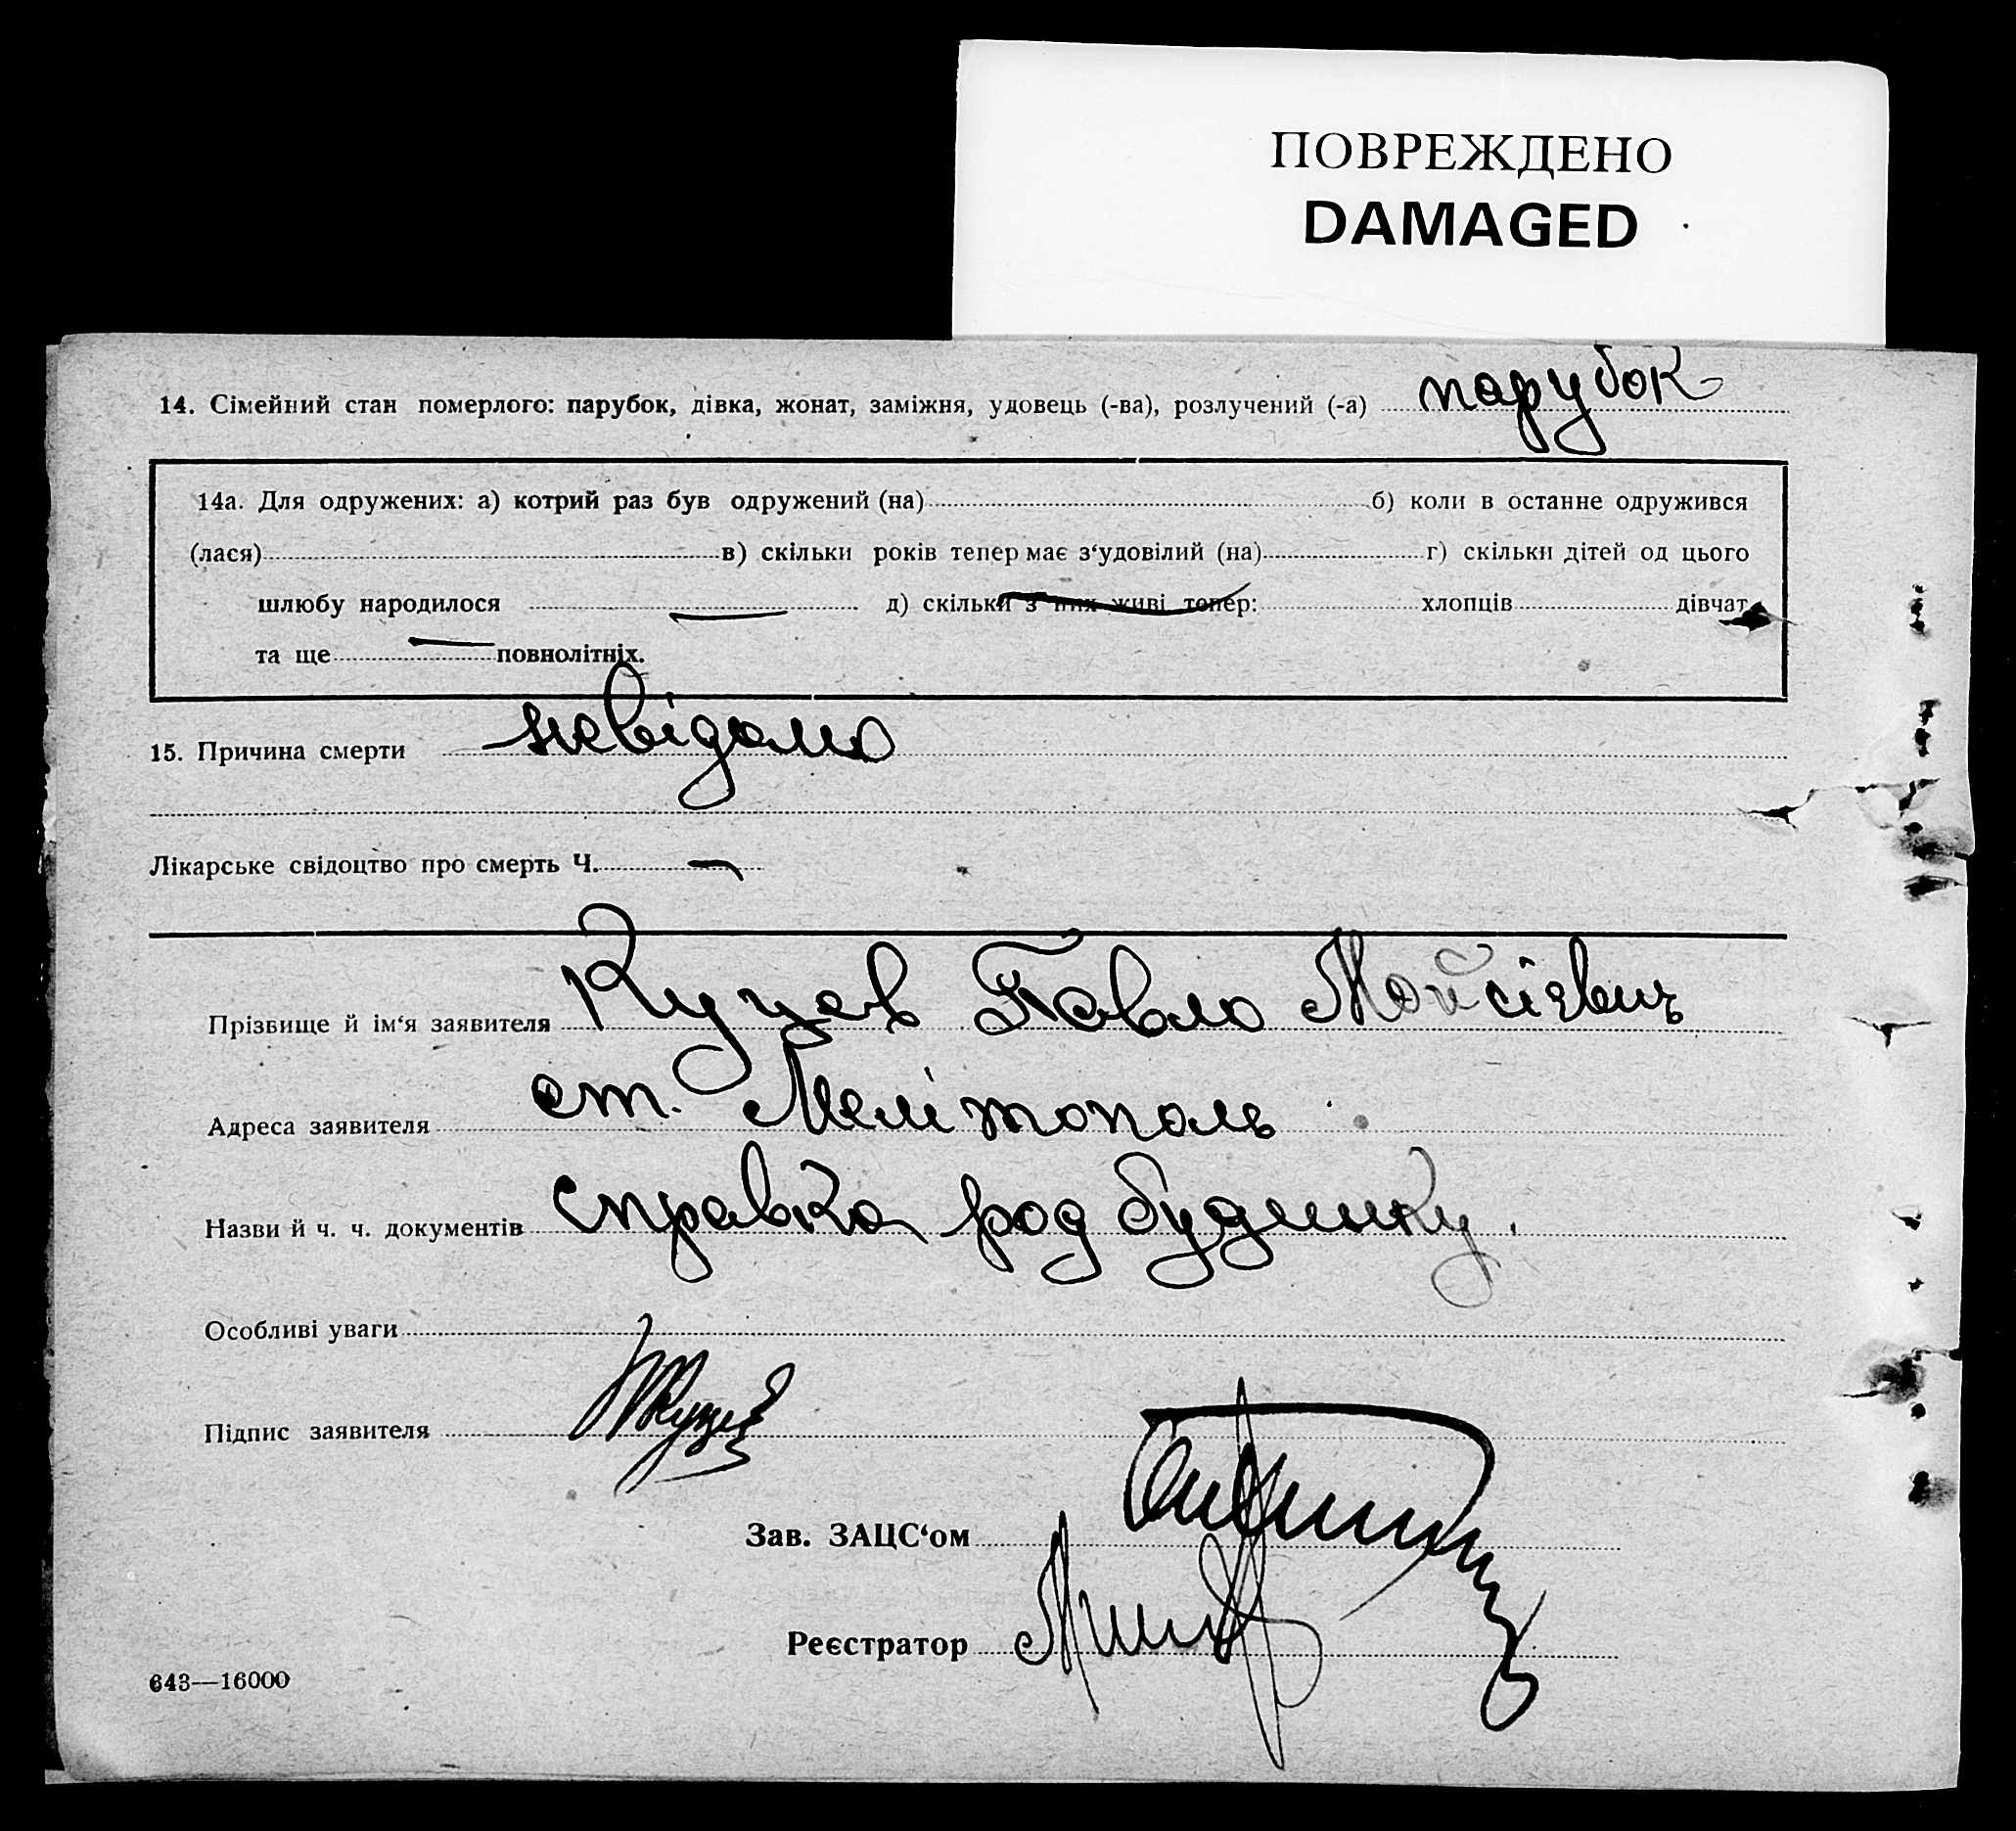 ПОВРЕЖДЕНО
DAMAGED
14. Сімейний стан померлого: парубок, дівка, жонат, заміжня, удовець (-ва), розлучений (-а) парубок
14а. Для одружених: а) котрий раз був одружений (на) б) коли в останнє одружився
(лася) в) скільки років тепер має з‘удовілий (на) г) скільки дітей од цього
шлюбу народилося — д) скільки з них живі тепер: хлопців дівчат
та ще — повнолітніх.
15. Причина смерти невідомо
Лікарське свідоцтво про смерть Ч. —
Прізвище й ім‘я заявителя Куцев Павло Мойсієвич
Адреса заявителя ст. Мелітополь
Назви й ч. ч. документів справка род будинку.
Особливі уваги
Підпис заявителя
Зав. ЗАЦС‘ом
Реєстратор
643—16000